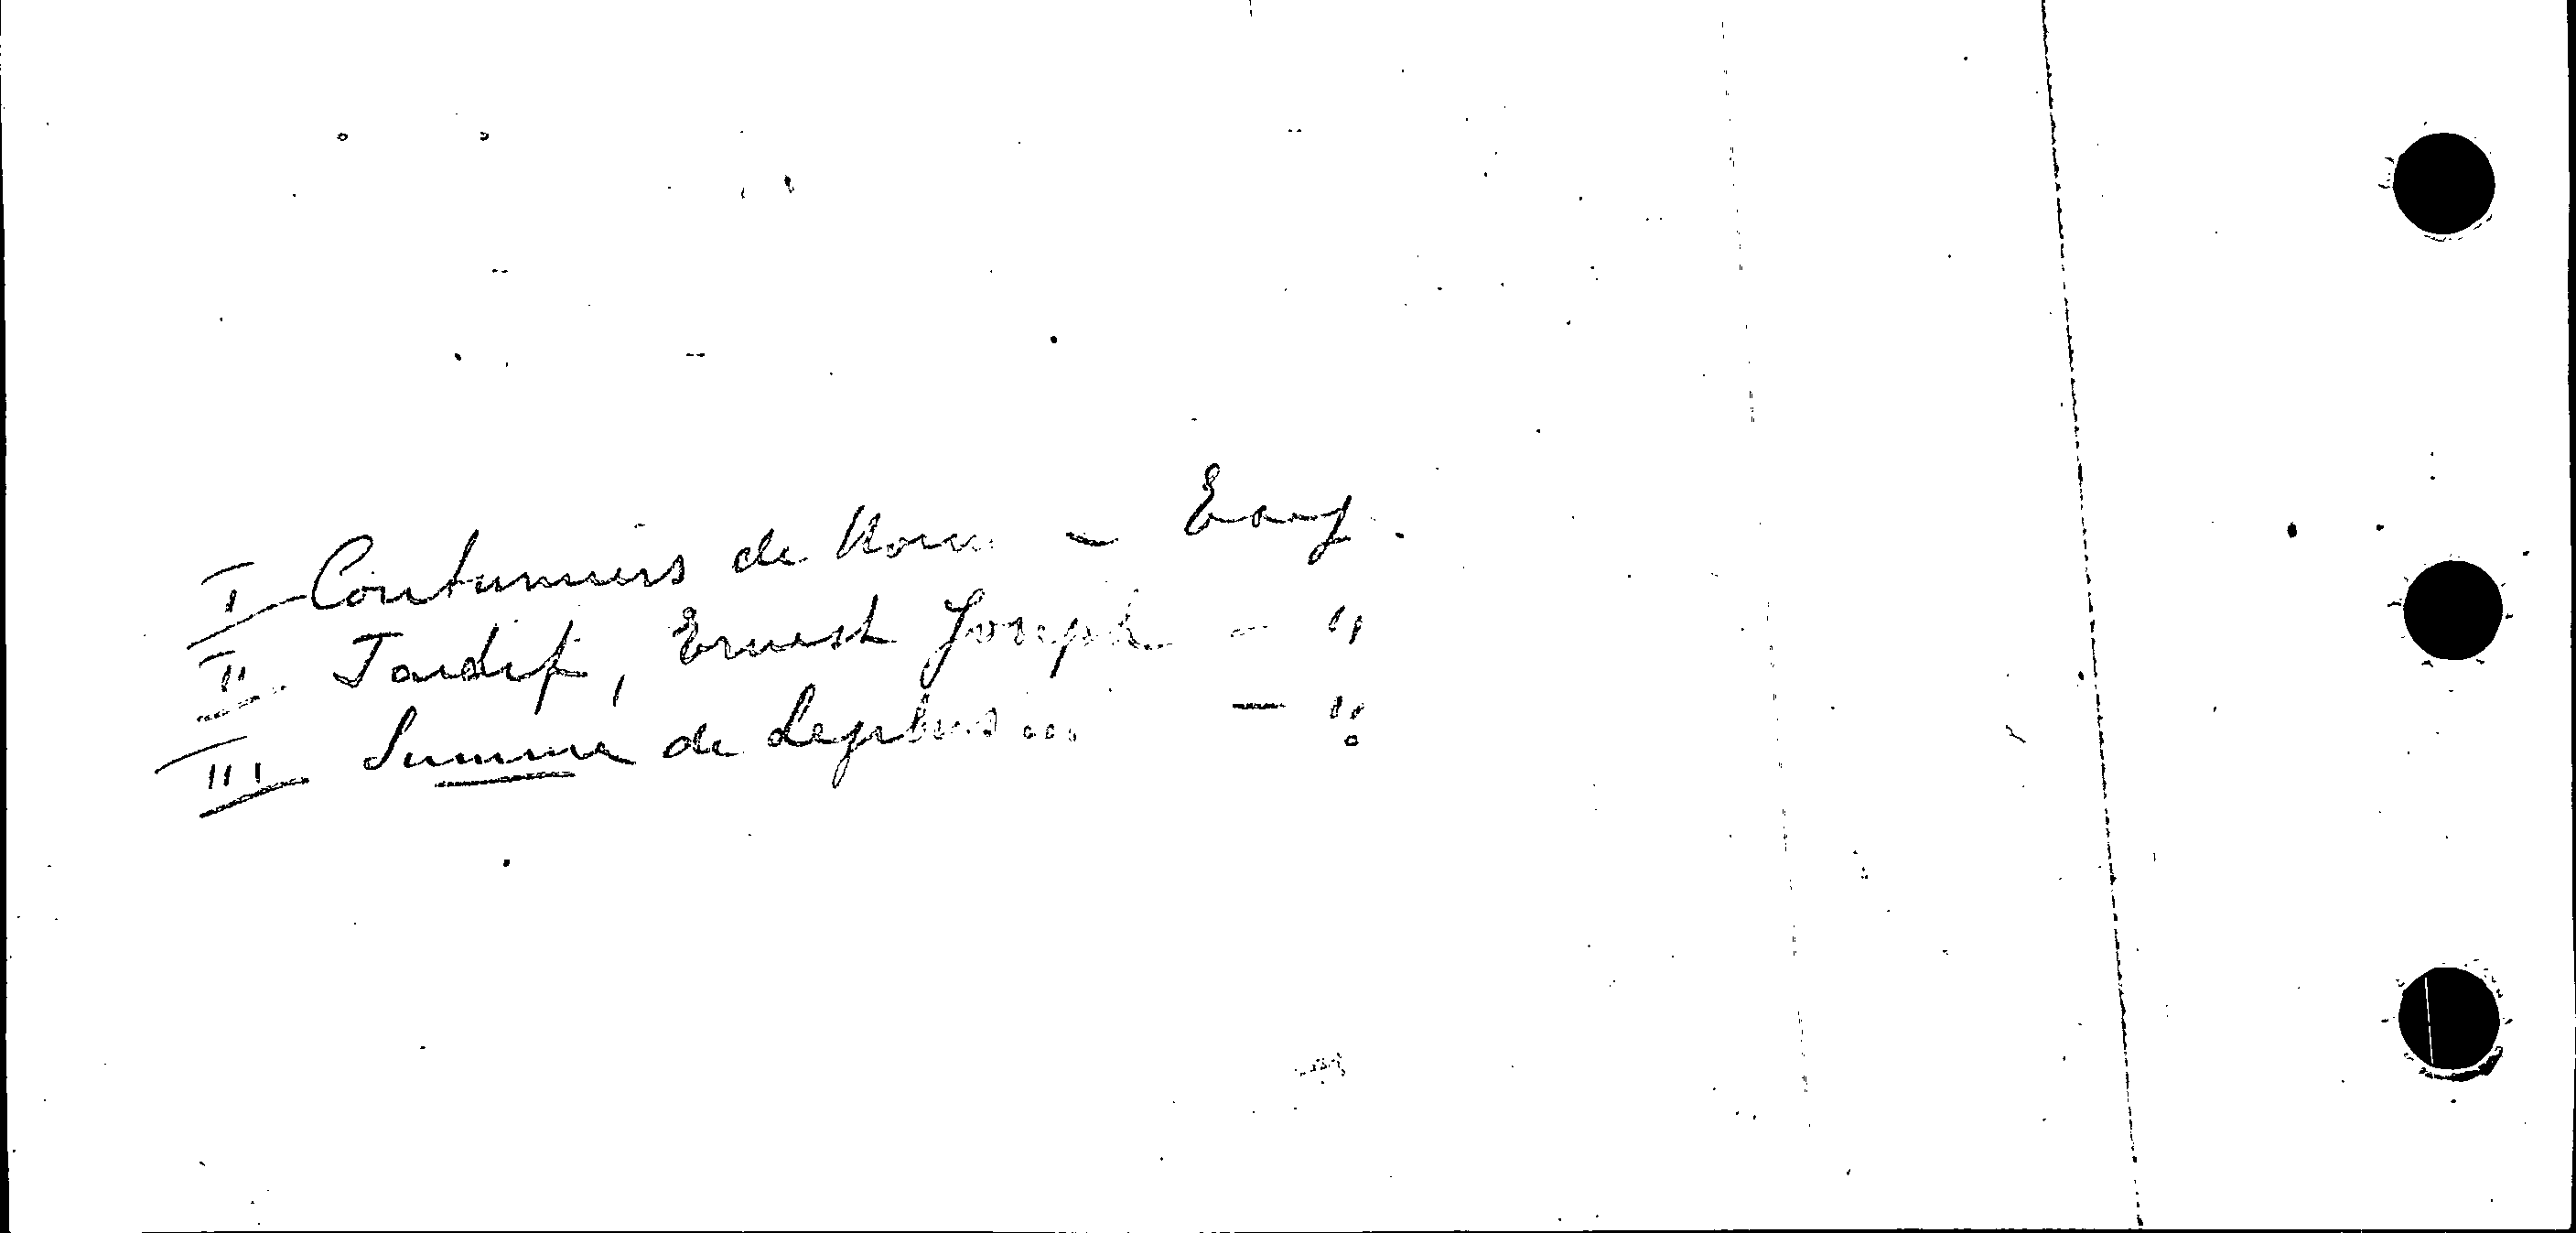 I Coutumiers de Norm – Eng.
II Tardif, Ernest Joseph – "
III Summa de Legibus ... – "